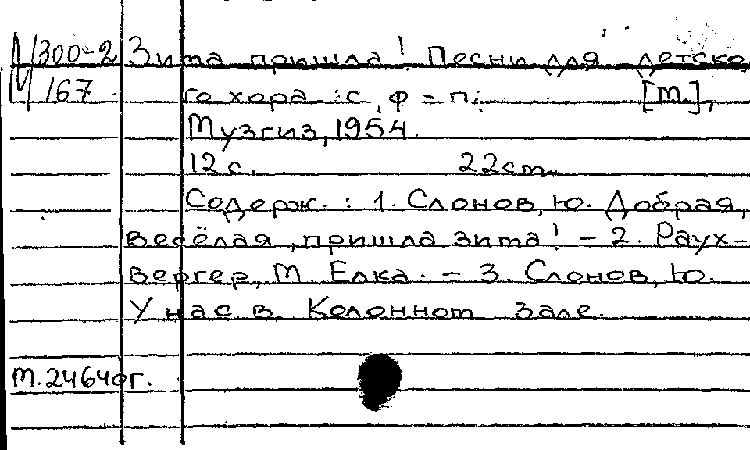 М300-2 Зима пришла! Песни для детско
М 167 го хора: с, ф = п.; [М.],
Музгиз, 1954.
12 с. 22 cm.
Содерж.: 1. Слонов, Ю. Добрая,
весёлая, пришла зима! – 2. Раух-
вергер, М. Елка. – 3. Слонов, Ю.
У нас в Колонном зале.
м. 24640г.